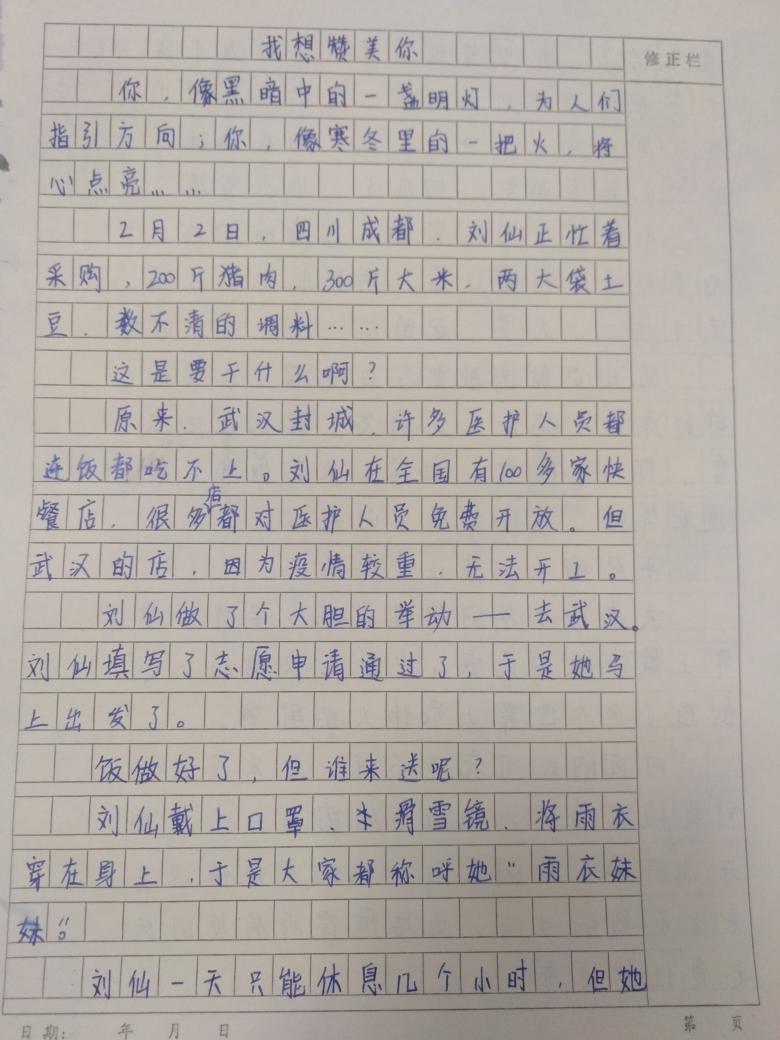 我想赞美你
修正栏
你，像黑暗中的一盏明灯，为人们
指引方向；你，像寒冬里的一把火，将
心点亮……
2月2日，四川成都．刘仙正忙着
采购，200斤猪肉．300斤大米．两大袋土
豆．数不清的调料……
这是要干什么啊？
原来．武汉封城．许多医护人员都
连饭都吃不上。刘仙在全国有100多家快
餐店．很多店都对医护人员免费开放。但
武汉的店．因为疫情较重．无法开工。
刘仙做了个大胆的举动——去武汉。
刘仙填写了志愿申请通过了，于是她马
上出发了。
饭做好了，但谁来送呢？
刘仙戴上口罩、滑雪镜．将雨衣
穿在身上．于是大家都称呼她“雨衣妹
妹”。
刘仙一天只能休息几个小时，但她
日期： 年 月 日
第 页